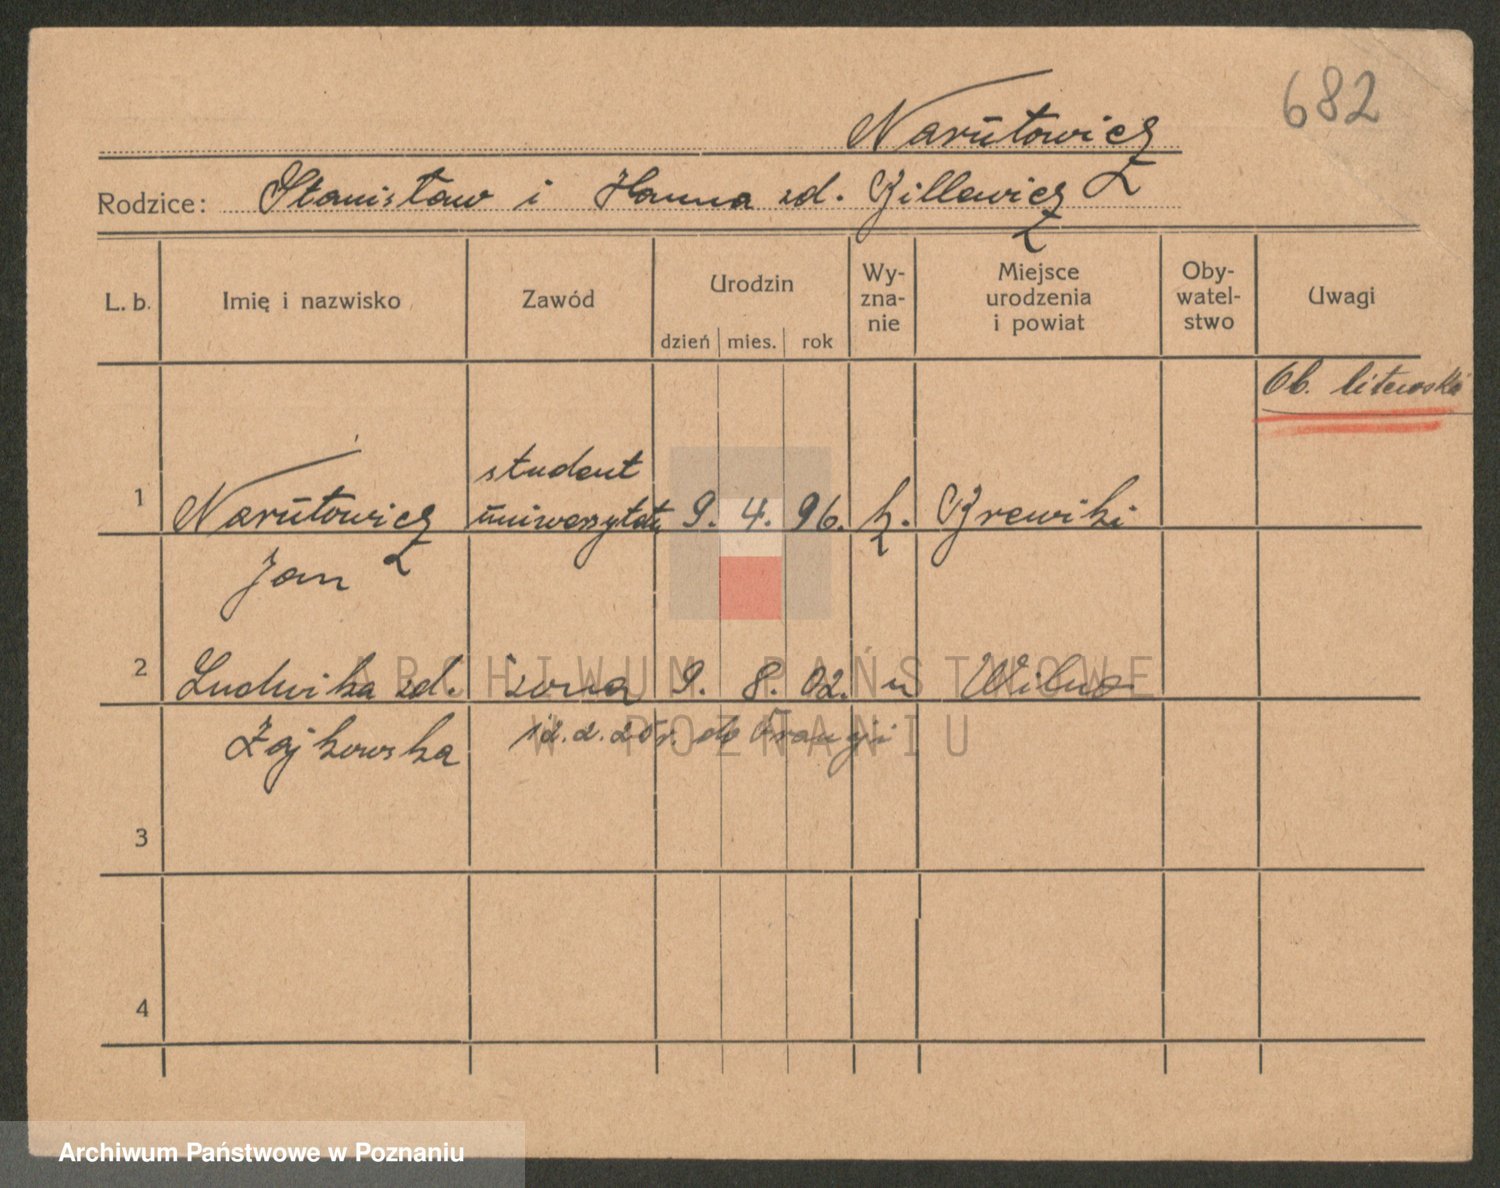 682
Narutowicz
Rodzice: Stanisław i Hanna zd. Billewicz
L. b. Imię i nazwisko Zawód Urodzin dzień mies. rok Wy-zna-nie Miejsce urodzenia i powiat Oby-watel-stwo Uwagi
Ob. litewski
1 Narutowicz student uniwersytetu 9. 4. 96. k. Brewiki
Jan
2 Ludwika zd. żona 9. 8. 02. " Wilno
Zajkowska 12.2.25r. do Francji
3
4
ARCHIWUM PAŃSTWOWE
W POZNANIU
Archiwum Państwowe w Poznaniu